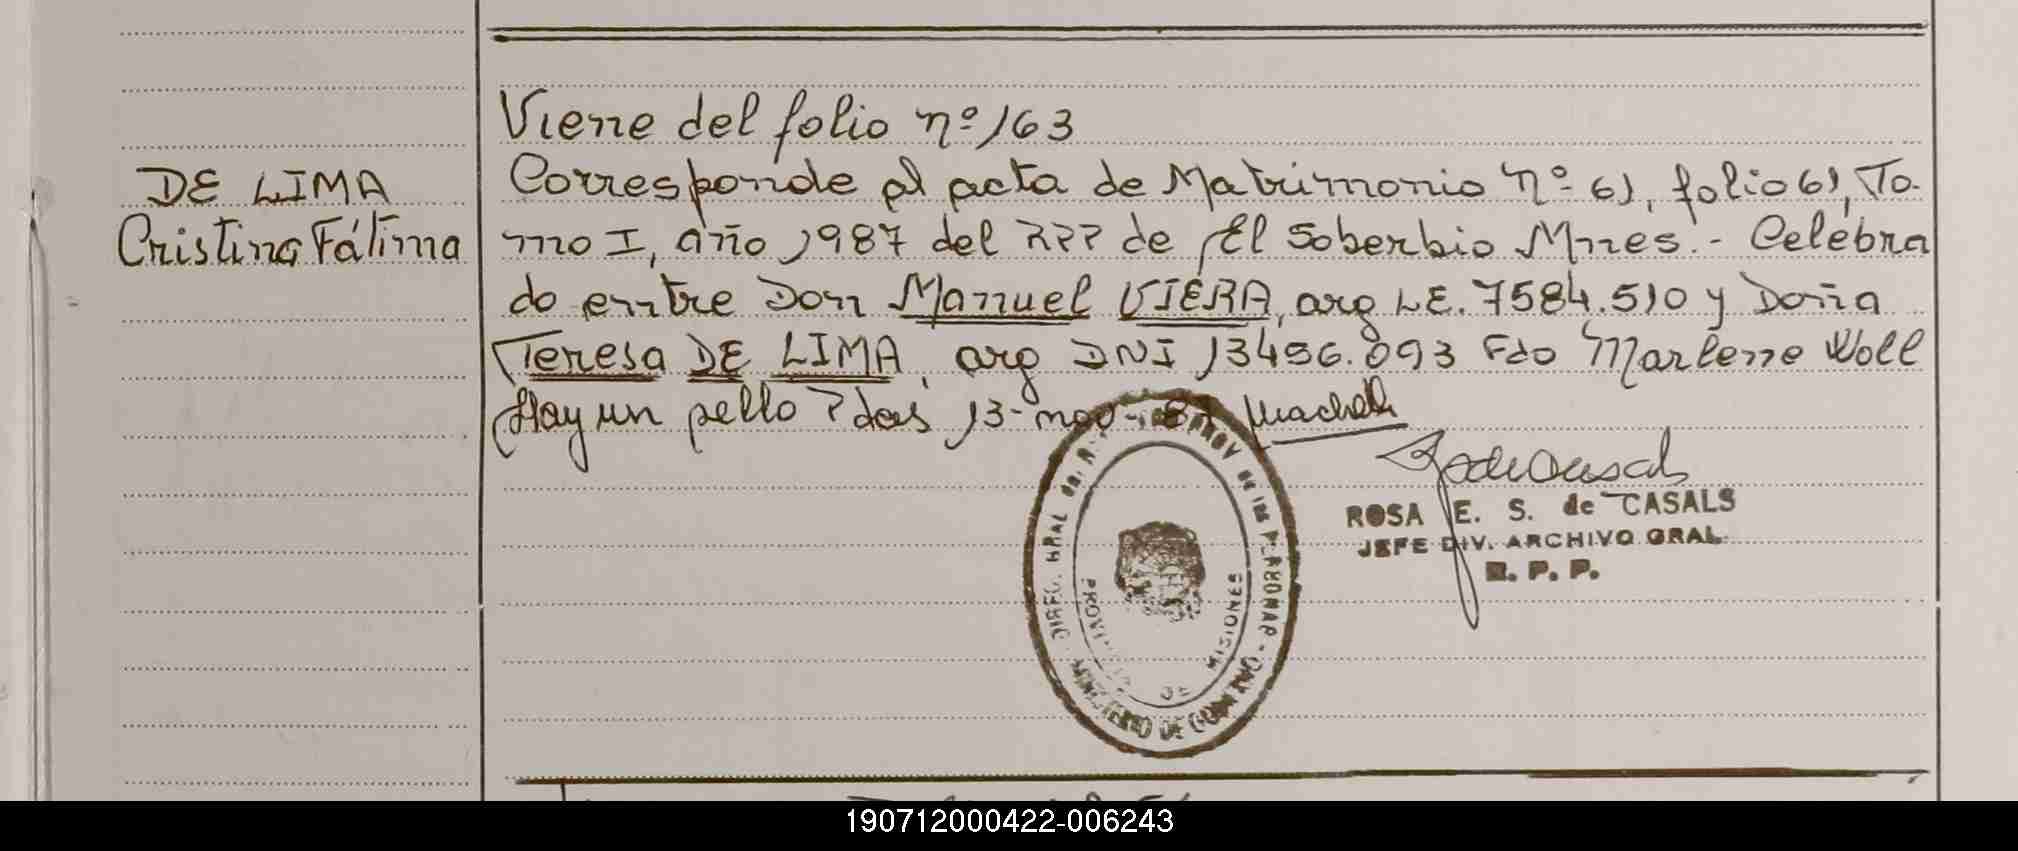 Viene del folio nº 163
DE LIMA
Cristina Fátima
Corresponde al acta de Matrimonio nº 61, folio 61, To-
mo I, año 1987 del RPP de El Soberbio Mnes.- Celebra
do entre Don Manuel VIERA, arg LE. 7584.510 y Doña
Teresa DE LIMA, arg DNI 13456.093 Fdo Marlene Woll
Hay un sello Pdas 13-nov-87
ROSA E. S. de CASALS
JEFE DIV. ARCHIVO GRAL.
R. P. P.
PROV DE LAS PERSONAS
MINISTERIO DE GOBIERNO
PROVINCIA DE MISIONES
190712000422-006243